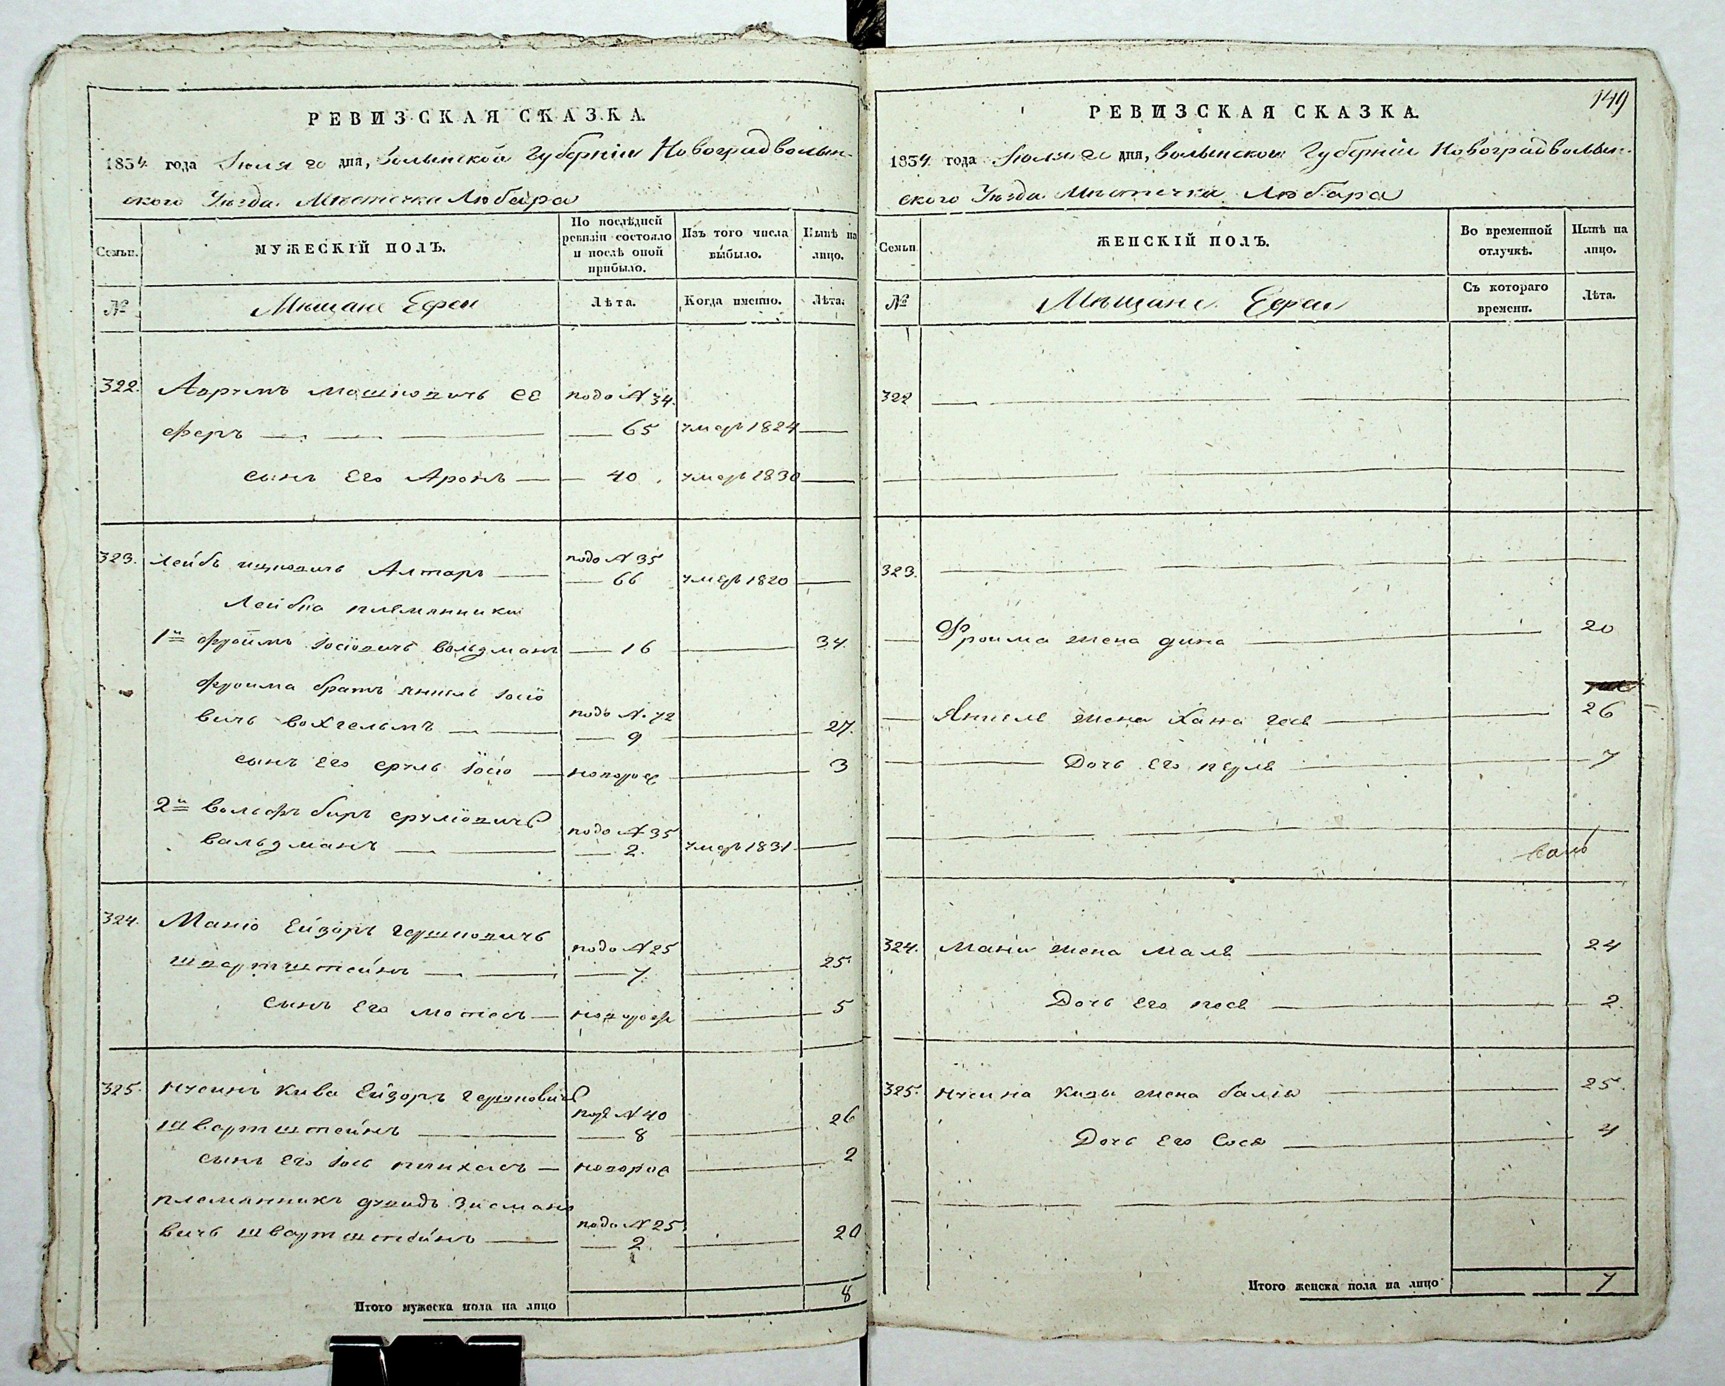 РЕВИЗСКАЯ СКАЗКА.
1834 года Іюля 20 дня, Волынской Губерніи Новоградволын-
ского Уѣзда Мѣстечка Любара
Семьи.
МУЖЕСКІЙ ПОЛЪ.
По послѣдней ревизіи состояло и послѣ оной прибыло.
Изъ того числа выбыло.
Нынѣ на лицо.
№
Мѣщане Евреи
Лѣта.
Когда именно.
Лѣта.
322. Аврумъ Мошковичъ подо N 34.
феръ — 65 умеръ 1824 —
сынъ Его Аронъ — 40 умеръ 1830 —
323. Лейбъ Ицковичъ Алтаръ — подо N 35
— 66 умеръ 1820 —
Лейбы племянники
1й Фроимъ Іосіовичъ Вольдманъ — 16 — 34.
Фроима братъ Янкель Іосіо
вичъ — подо N. 72
— 9 — 27.
сынъ Его Сруль Іосіо — новорож — 3
2й Вольфъ Беръ Сруліовичъ
Вальдманъ — подо N 35
— 2. умеръ 1831. —
324. Маніо Ейзоръ Гершковичъ
Швартштейнъ — подо N 25
— 7. — 25
сынъ Его Мотесъ — новорож — 5
325. Нусинъ Кива Ейзоръ Гершковичъ
Швартштейнъ — под N 40
— 8 — 26
сынъ Его Іось Пинхасъ — новорож — 2
племянникъ Дувидъ Зисмано
вичъ Швартштейнъ — подо N 25
— 2. — 20
Итого мужеска пола на лицо 8
149
РЕВИЗСКАЯ СКАЗКА.
1834 года Іюля 20 дня, Волынской Губерніи Новоградволын-
ского Уѣзда Мѣстечка Любара
Семьи
ЖЕНСКІЙ ПОЛЪ.
Во временной отлучкѣ.
Нынѣ на лицо.
№
Мѣщане Евреи
Съ котораго времени.
Лѣта.
322 —
323. —
— Фроима жена Дина — 20
— Янкеля жена Хана — 26
— Дочь Его Перля — 7
324. Маніи жена Маля — 24
Дочь Его Пося — 2.
325. Нусина Кивы жена Бася — 25.
Дочь Его Сося — 4
Итого женска пола на лицо 7